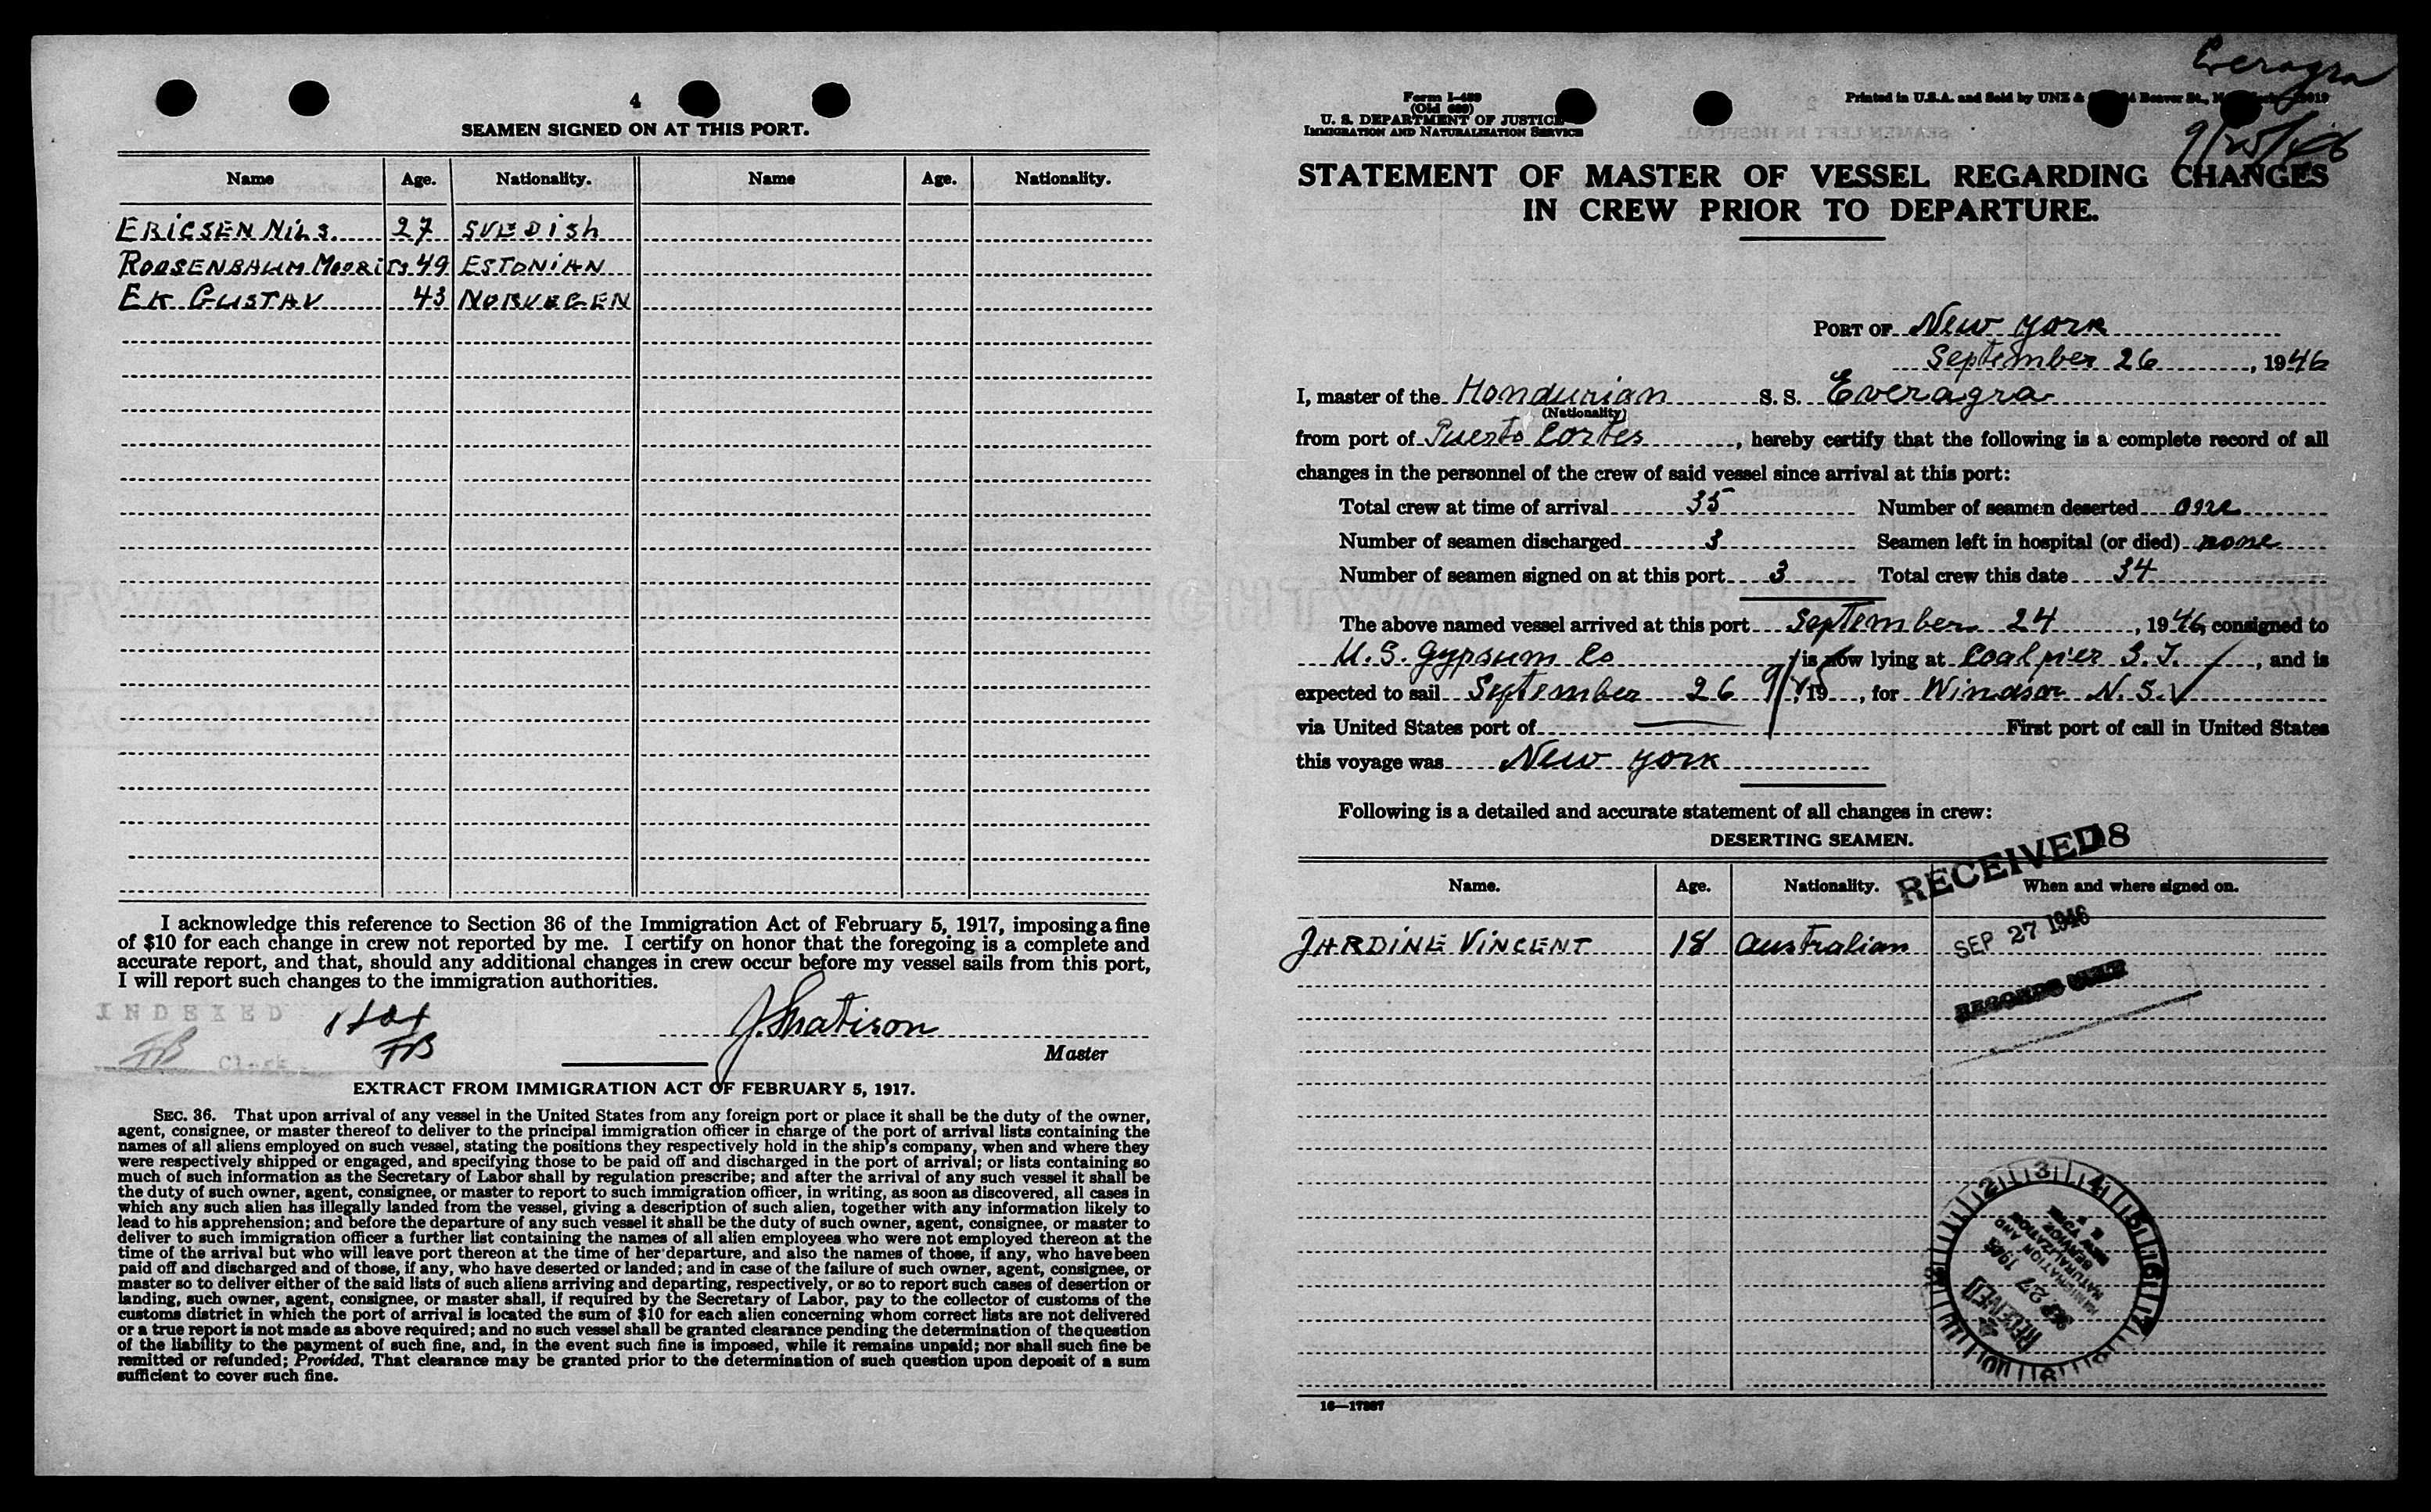 4
SEAMEN SIGNED ON AT THIS PORT.
Name Age. Nationality. Name Age. Nationality.
ERICSEN NILS. 27 SVEDISH
ROOSENBAUM MOORITS 49 ESTONIAN
EK GUSTAV 43 NORVEGEN
I acknowledge this reference to Section 36 of the Immigration Act of February 5, 1917, imposing a fine
of $10 for each change in crew not reported by me. I certify on honor that the foregoing is a complete and
accurate report, and that, should any additional changes in crew occur before my vessel sails from this port,
I will report such changes to the immigration authorities.
INDEXED
FB Clerk
FB
Master
EXTRACT FROM IMMIGRATION ACT OF FEBRUARY 5, 1917.
SEC. 36. That upon arrival of any vessel in the United States from any foreign port or place it shall be the duty of the owner,
agent, consignee, or master thereof to deliver to the principal immigration officer in charge of the port of arrival lists containing the
names of all aliens employed on such vessel, stating the positions they respectively hold in the ship's company, when and where they
were respectively shipped or engaged, and specifying those to be paid off and discharged in the port of arrival; or lists containing so
much of such information as the Secretary of Labor shall by regulation prescribe; and after the arrival of any such vessel it shall be
the duty of such owner, agent, consignee, or master to report to such immigration officer, in writing, as soon as discovered, all cases in
which any such alien has illegally landed from the vessel, giving a description of such alien, together with any information likely to
lead to his apprehension; and before the departure of any such vessel it shall be the duty of such owner, agent, consignee, or master to
deliver to such immigration officer a further list containing the names of all alien employees who were not employed thereon at the
time of the arrival but who will leave port thereon at the time of her departure, and also the names of those, if any, who have been
paid off and discharged and of those, if any, who have deserted or landed; and in case of the failure of such owner, agent, consignee, or
master so to deliver either of the said lists of such aliens arriving and departing, respectively, or so to report such cases of desertion or
landing, such owner, agent, consignee, or master shall, if required by the Secretary of Labor, pay to the collector of customs of the
customs district in which the port of arrival is located the sum of $10 for each alien concerning whom correct lists are not delivered
or a true report is not made as above required; and no such vessel shall be granted clearance pending the determination of the question
of the liability to the payment of such fine, and, in the event such fine is imposed, while it remains unpaid; nor shall such fine be
remitted or refunded; Provided, That clearance may be granted prior to the determination of such question upon deposit of a sum
sufficient to cover such fine.
Everagra
9/25/46
Form I-489
(Old 689)
U. S. DEPARTMENT OF JUSTICE
IMMIGRATION AND NATURALIZATION SERVICE
Printed in U.S.A. and Sold by UNZ & Beaver St., N
STATEMENT OF MASTER OF VESSEL REGARDING CHANGES
IN CREW PRIOR TO DEPARTURE.
PORT OF New York
September 26, 1946
I, master of the Hondurian S. S. Everagra
(Nationality)
from port of Puerto Cortes, hereby certify that the following is a complete record of all
changes in the personnel of the crew of said vessel since arrival at this port:
Total crew at time of arrival 35 Number of seamen deserted one
Number of seamen discharged 3 Seamen left in hospital (or died) none
Number of seamen signed on at this port 3 Total crew this date 34
The above named vessel arrived at this port September 24, 1946, consigned to
U.S. Gypsum Co is now lying at Coal pier S. I., and is
expected to sail September 26, 19, for Windsor N. S.
via United States port of First port of call in United States
this voyage was New York
Following is a detailed and accurate statement of all changes in crew:
DESERTING SEAMEN.
RECEIVED 18
Name. Age. Nationality. When and where signed on.
JARDINE VINCENT 18 Australian
SEP 27 1946
RECORDS UNIT
RECEIVED
SEP 27 1946
IMMIGRATION AND
NATURALIZATION
SERVICE
16—17287